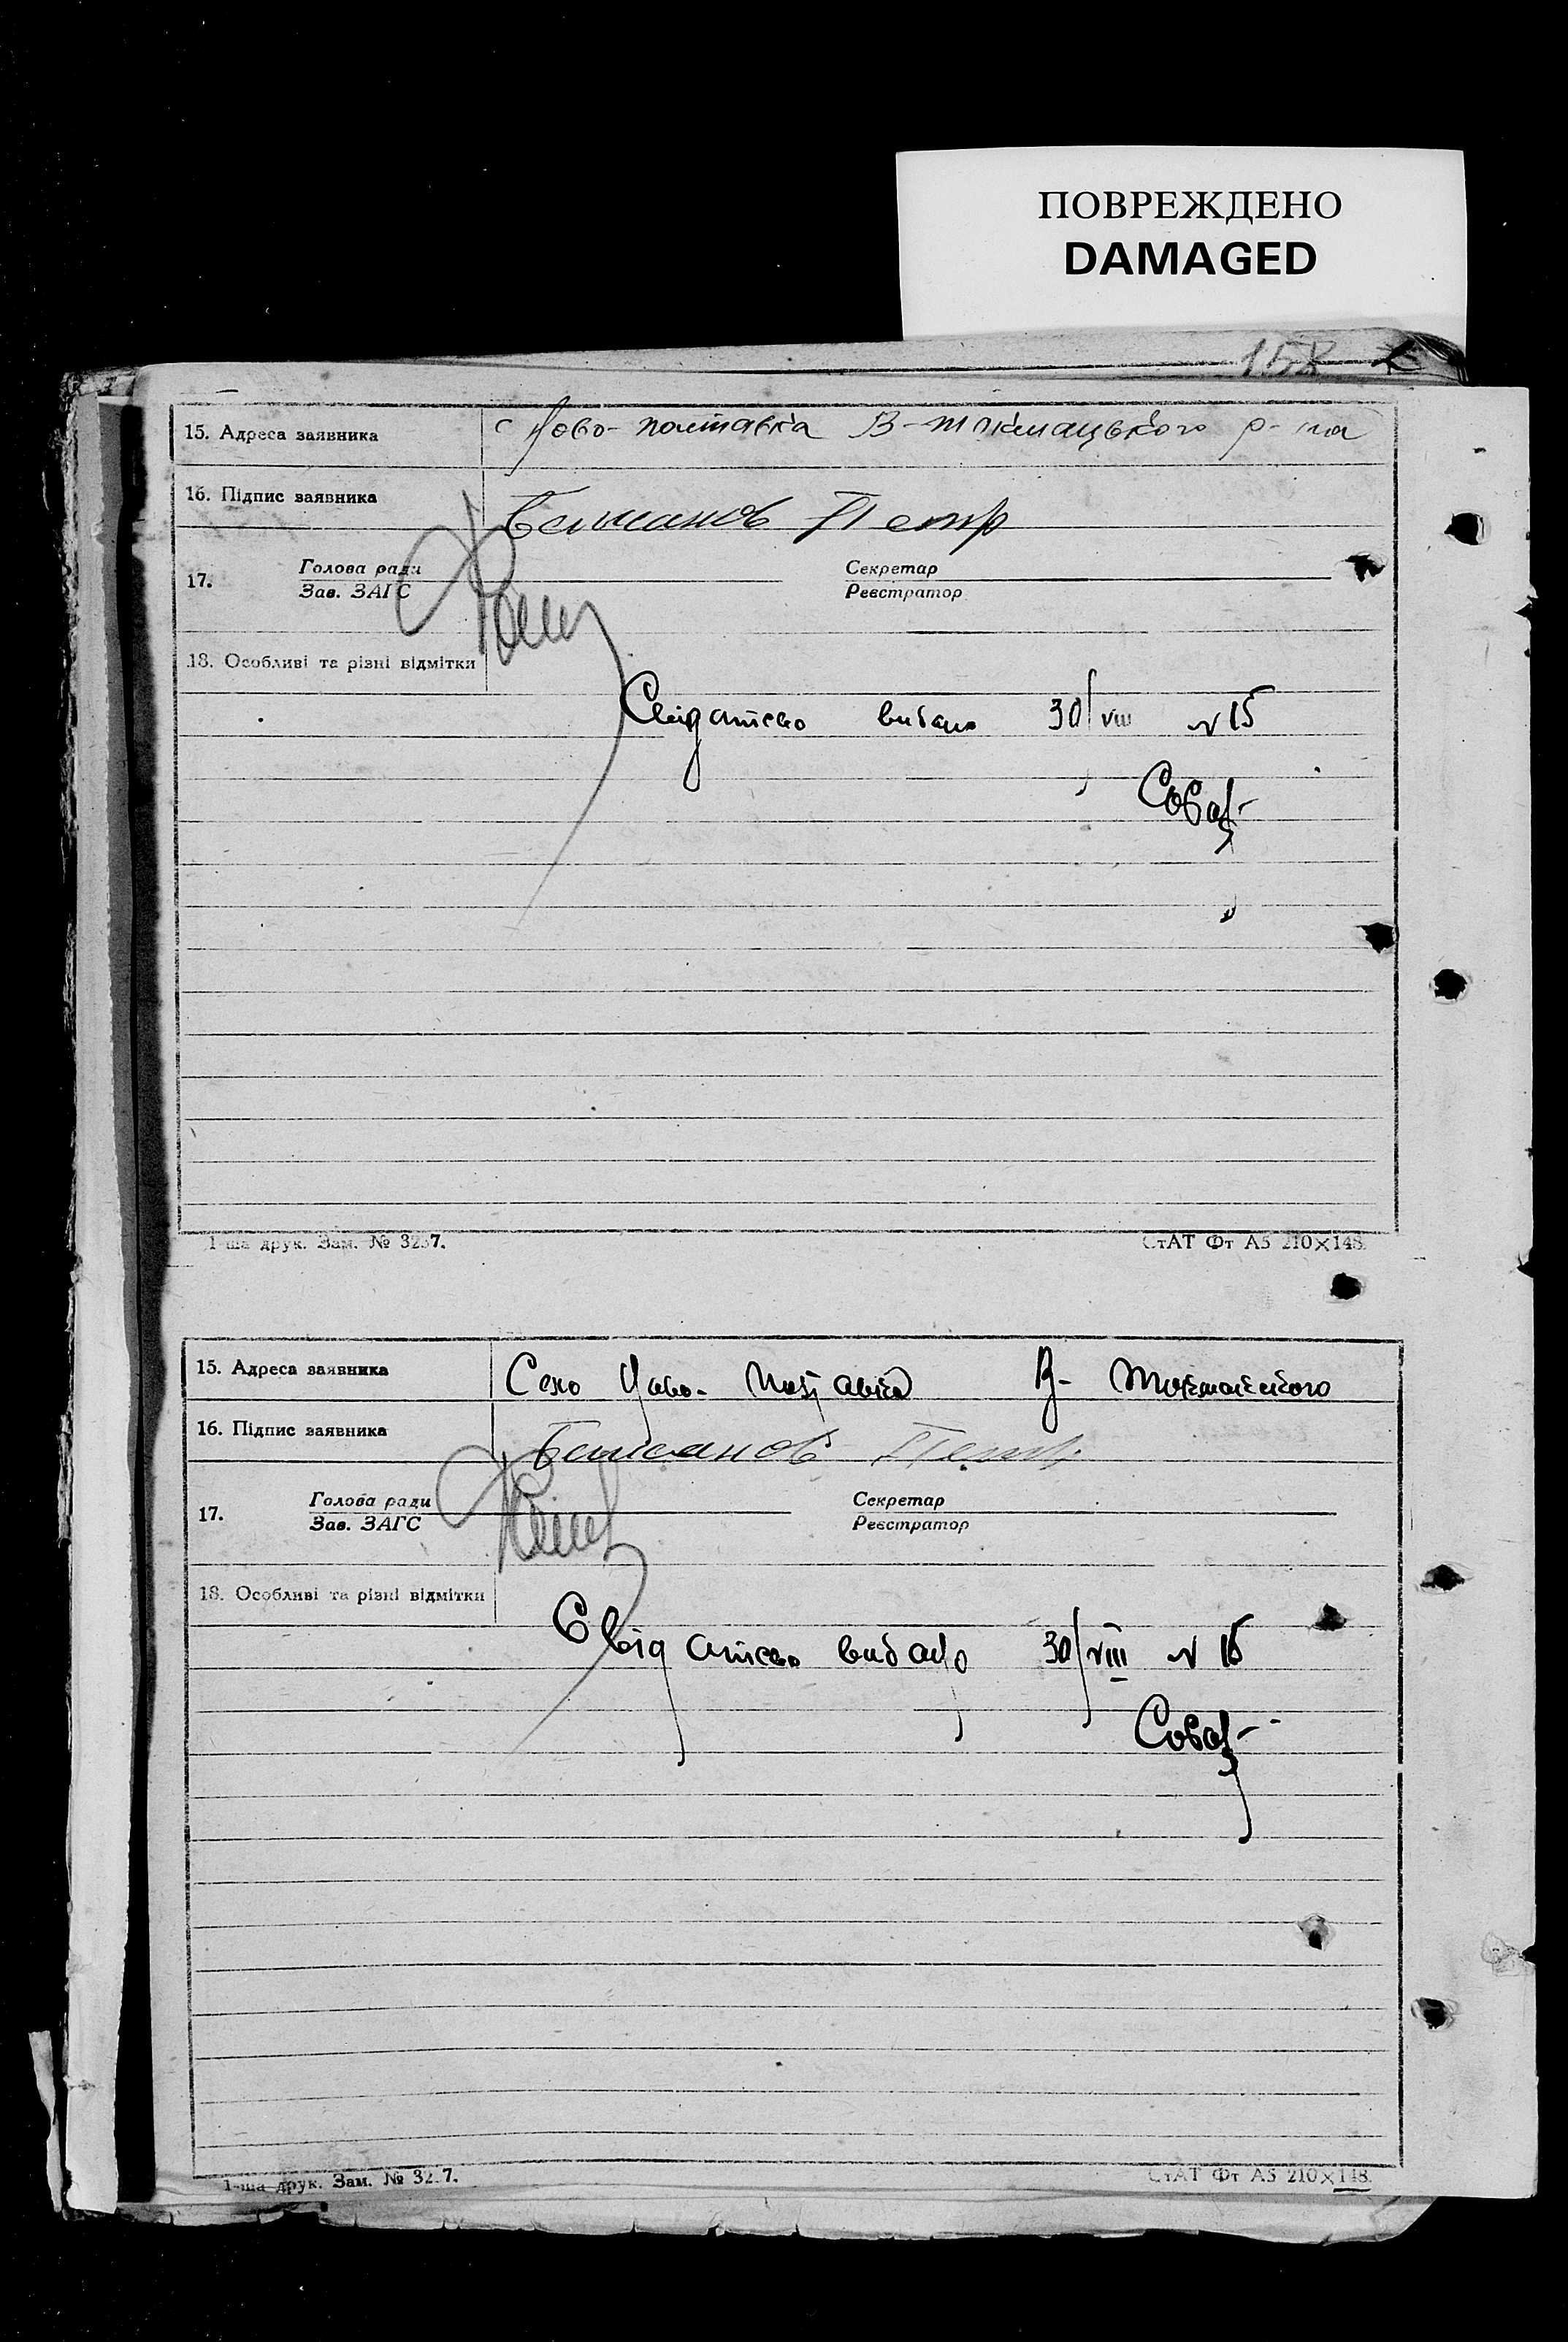 ПОВРЕЖДЕНО
DAMAGED
15. Адреса заявника с Ново-полтавка В-токмацького р-на
16. Підпис заявника Петр
17. Голова ради Секретар
Зав. ЗАГС Реєстратор
18. Особливі та різні відмітки
Свідатство видано 30/VIII N 15
1-ша друк. Зам. № 3237.
СтАТ Фт А5 210×148.
15. Адреса заявника Село Ново- В- Токмакского
16. Підпис заявника Петр
17. Голова ради Секретар
Зав. ЗАГС Реєстратор
18. Особливі та різні відмітки
Свідатство видано 30/VIII N 15
1-ша друк. Зам. № 32 7.
СтАТ Фт А5 210×148.